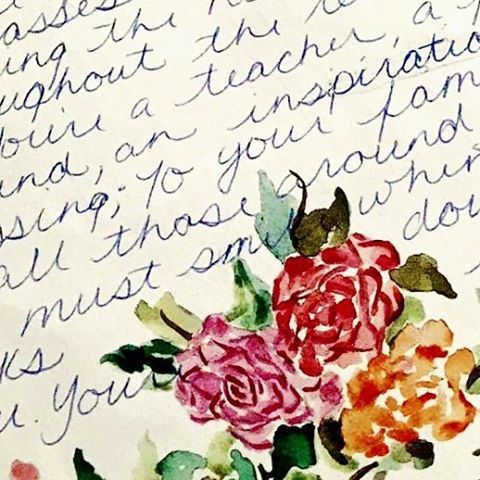 asses
ing the
ughout the
you're a teacher, a
and, an inspiration
ssing; to your fam
all those around
must smi when
dou
ks
u. You